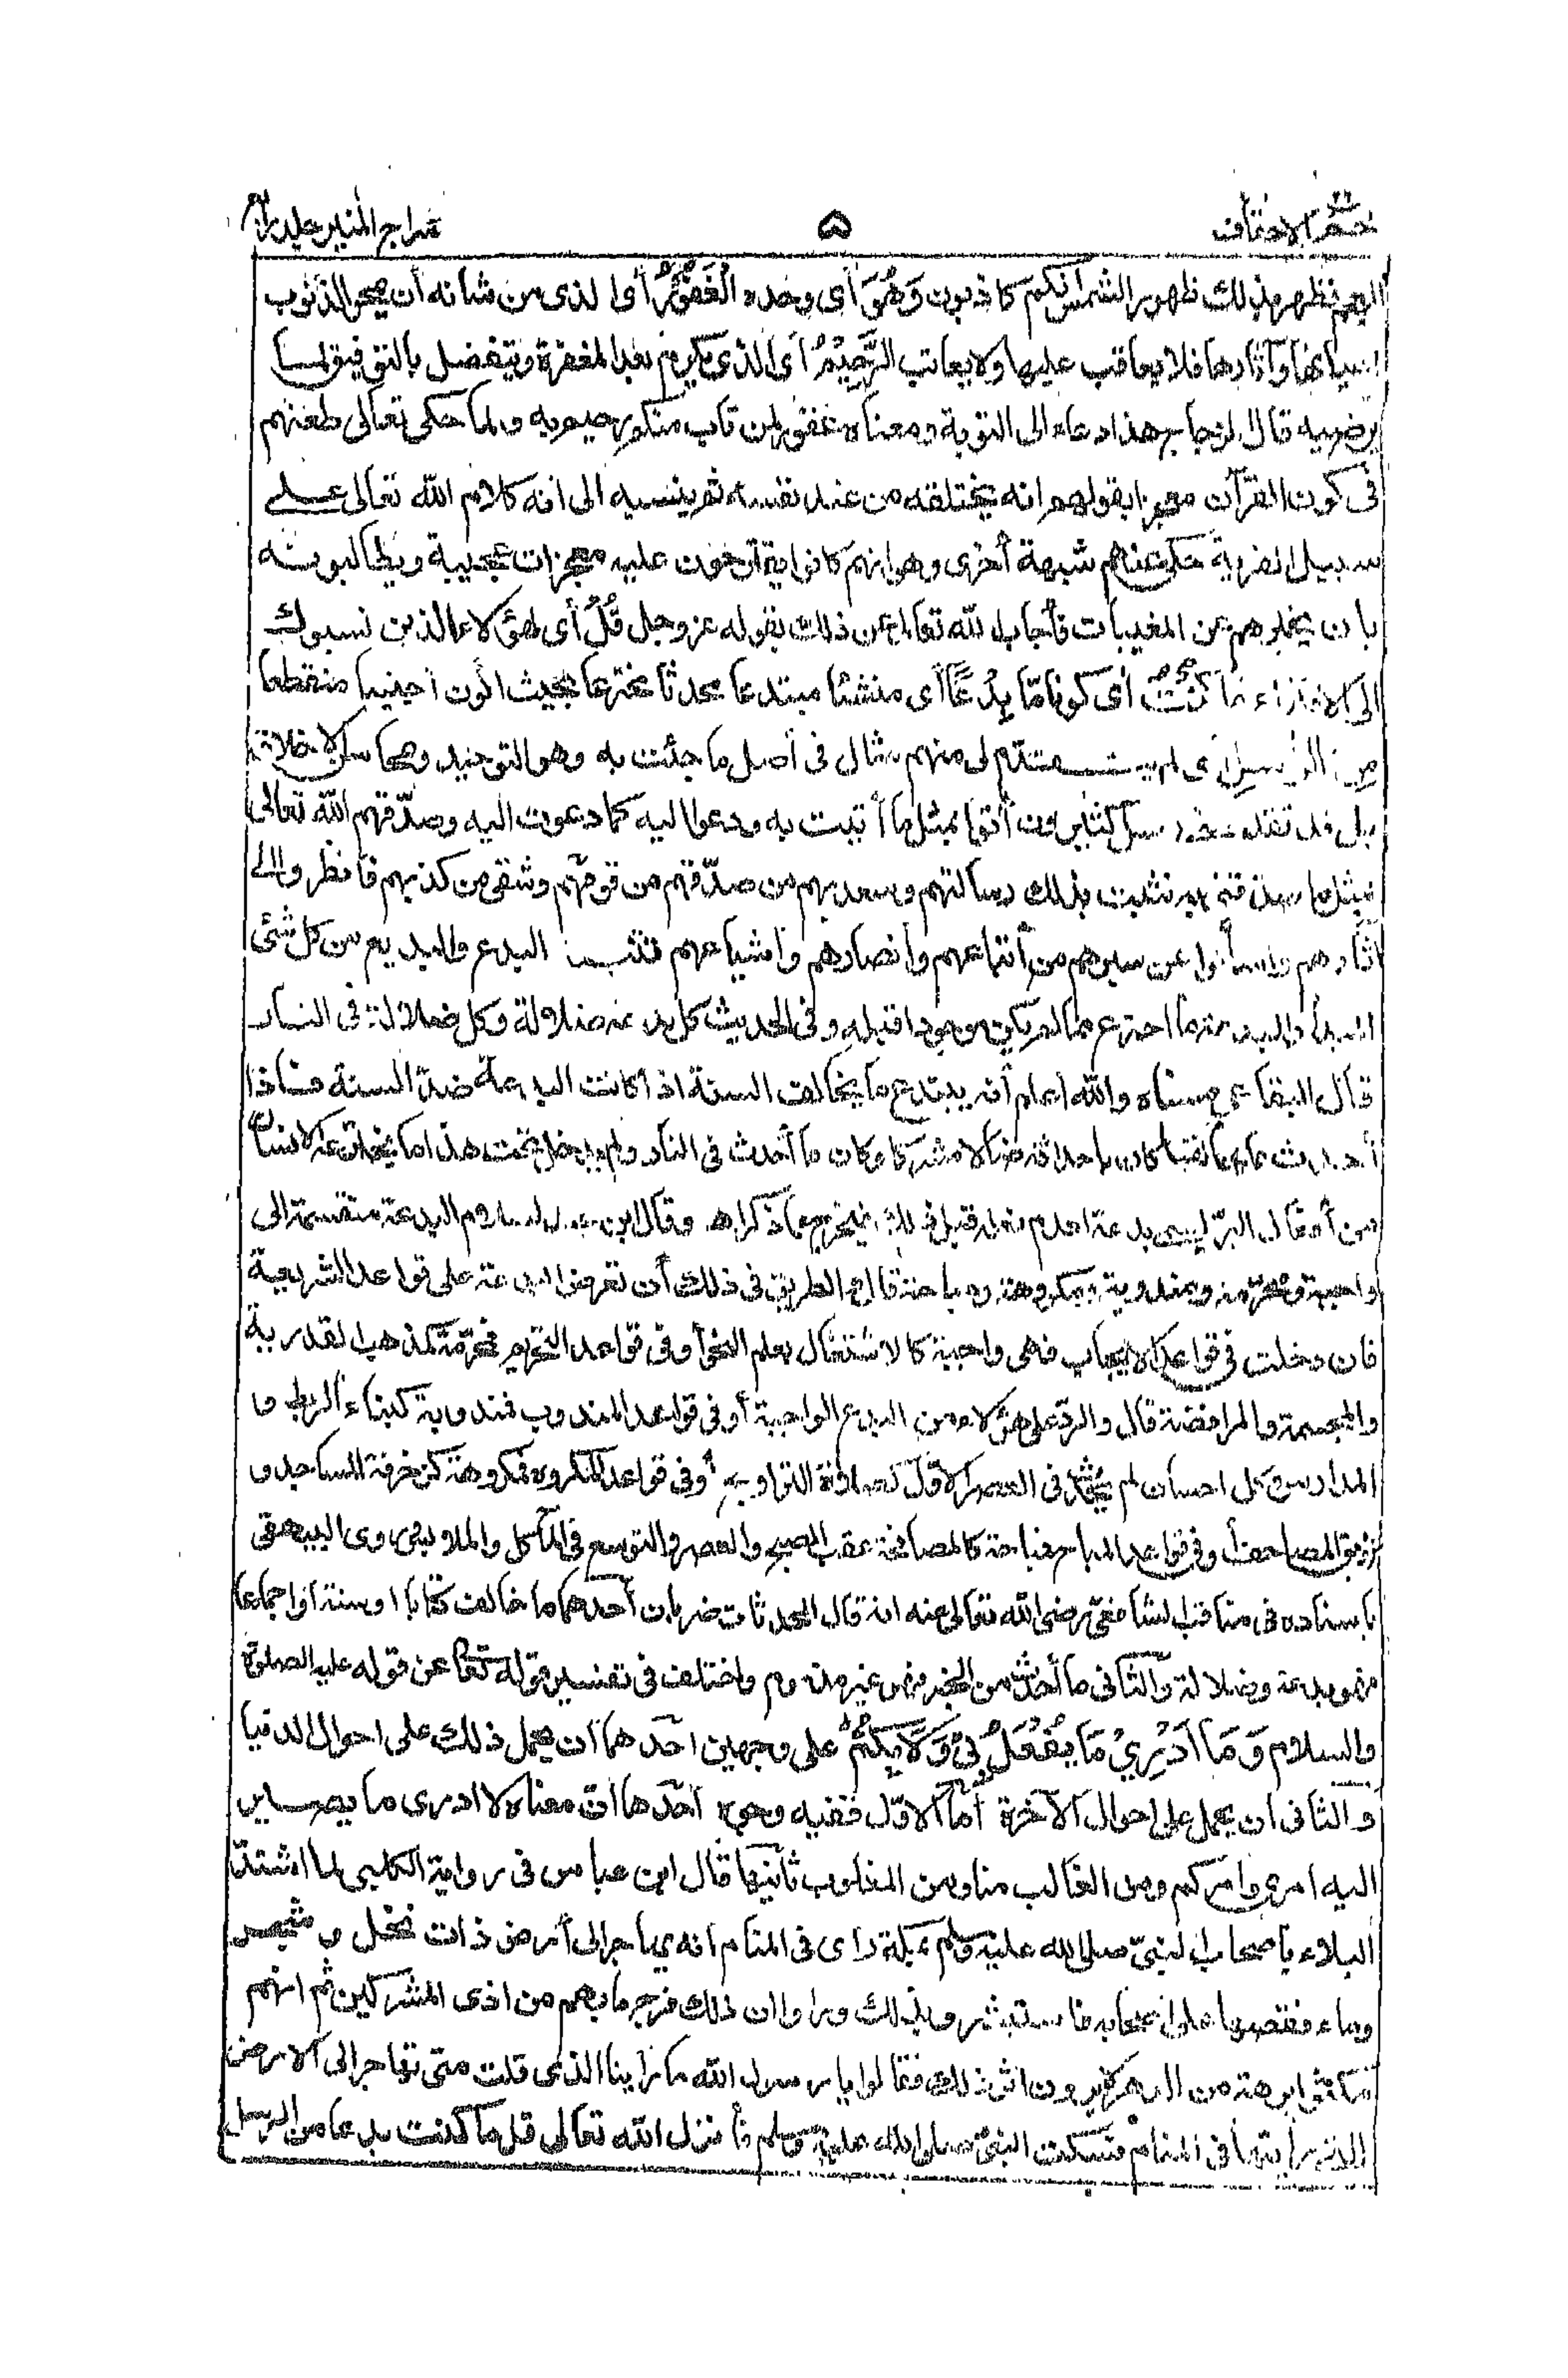 حم الاحقاف
٥
سراج المنير جلد رابع
اليهم فظهر بذلك ظهور الشمس انكم كاذبون وَهُوَ أى وحده الْغَفُوْرُ أى الذى من شانه أن يمحو الذنوب
أعيانها وآثارها فلا يعاقب عليها ولا يعاتب الرَّحِيْمُ أى الذى يكرم بعد المغفرة ويتفضل بالتوفيق لما
يرضيه قال الزجاج هذا دعاء الى التوبة ومعناه غفور لمن تاب منكم رحيم به ولما حكى تعالى طعنهم
فى كون القرآن معجزا بقولهم انه يختلقه من عند نفسه ثم ينسبه الى انه كلام الله تعالى على
سبيل الفرية حكى عنهم شبهة أخرى وهو انهم كانوا يقترحون عليه معجزات عجيبة ويطالبونه
بان يخبرهم عن المغيبات فأجاب الله تعالى عن ذلك بقوله عز وجل قُلْ أى لهؤلاء الذين نسبوك
الى الافتراء مَا كُنْتُ أى كونا مّا بِدْعًا أى منشئا مبتدعا محدثا مخترعا بحيث اكون اجنبيا منقطعا
من الرسل أى لم يتقدم لى منهم مثال فى أصل ما جئت به وهو التوحيد ومحاسن الاخلاق
بل قد تقدم رسل كثيرون أتوا بمثل ما أتيت به ودعوا اليه كما دعوت اليه وصدّقهم الله تعالى
بمثل ما صدقنى به فثبتت بذلك رسالتهم وسعد بهم من صدّقهم من قومهم وشقى من كذبهم فانظروا الى
آثارهم واسألوا عن سيرهم من أتباعهم وأنصارهم وأشياعهم البدع والبديع من كل شئ
المبدأ والبدعة ما اخترع مما لم يكن موجودا قبله وفى الحديث كل بدعة ضلالة وكل ضلالة فى النار
قال البقاعى معناه والله اعلم أن يبتدع ما يخالف السنة اذا كانت البدعة ضدّ السنة فاذا
أحدث ما يخالفها كان باحداثه ضالا مشركا وكان ما أحدث فى النار ولم يدخل تحت هذا ما يخترعه الانسان
من أفعال البرّ ليس بدعة لعدم فعله قبل ذلك فيخرج عما ذكر اهـ وقال ابن عبد السلام البدعة منقسمة الى
واجبة ومحرّمة ومندوبة ومكروهة ومباحة قال والطريق فى ذلك أن تعرض البدعة على قواعد الشريعة
فان دخلت فى قواعد الايجاب فهى واجبة كالاشتغال بعلم النحو أو فى قواعد التحريم فمحرّمة كمذهب القدرية
والمجسمة والرافضة قال والردّ على هؤلاء من البدع الواجبة أو فى قواعد المندوب فمندوبة كبناء الربط و
المدارس وكل احسان لم يحدث فى العصر الاوّل كصلاة التراويح أو فى قواعد المكروه فمكروهة كزخرفة المساجد و
تزويق المصاحف أو فى قواعد المباح فمباحة كالمصافحة عقب الصبح والعصر والتوسع فى المآكل والملابس وروى البيهقى
باسناده فى مناقب الشافعى رضى الله تعالى عنه انه قال المحدثات ضربان أحدهما ما خالف كتابا او سنة او اجماعا
فهو بدعة وضلالة والثانى ما أحدث من الخير فهو غير مذموم واختلف فى تفسير قوله تعالى عن قوله عليه الصلوة
والسلام وَمَا أَدْرِيْ مَا يُفْعَلُ بِيْ وَلَا بِكُمْ على وجهين احدهما ان يحمل ذلك على احوال الدنيا
والثانى ان يحمل على احوال الآخرة أما الاوّل ففيه وجوه أحدها أن معناه لا ادرى ما يصير
اليه امرى وامركم ومن الغالب منا ومن المغلوب ثانيها قال ابن عباس فى رواية الكلبى لما اشتدّ
البلاء باصحاب النبىّ صلى الله عليه وسلم بمكة رأى فى المنام انه يهاجر الى أرض ذات نخل وشجر
وماء فقصها على اصحابه فاستبشروا بذلك ورأوا ان ذلك فرج مما بهم من اذى المشركين ثم انهم
مكثوا برهة من الدهر لا يرون اثر ذلك فقالوا يا رسول الله ما رأينا الذى قلت متى تهاجر الى الارض
التى رأيتها فى المنام فسكت النبىّ صلى الله عليه وسلم فأنزل الله تعالى قل ما كنت بدعا من الرسل